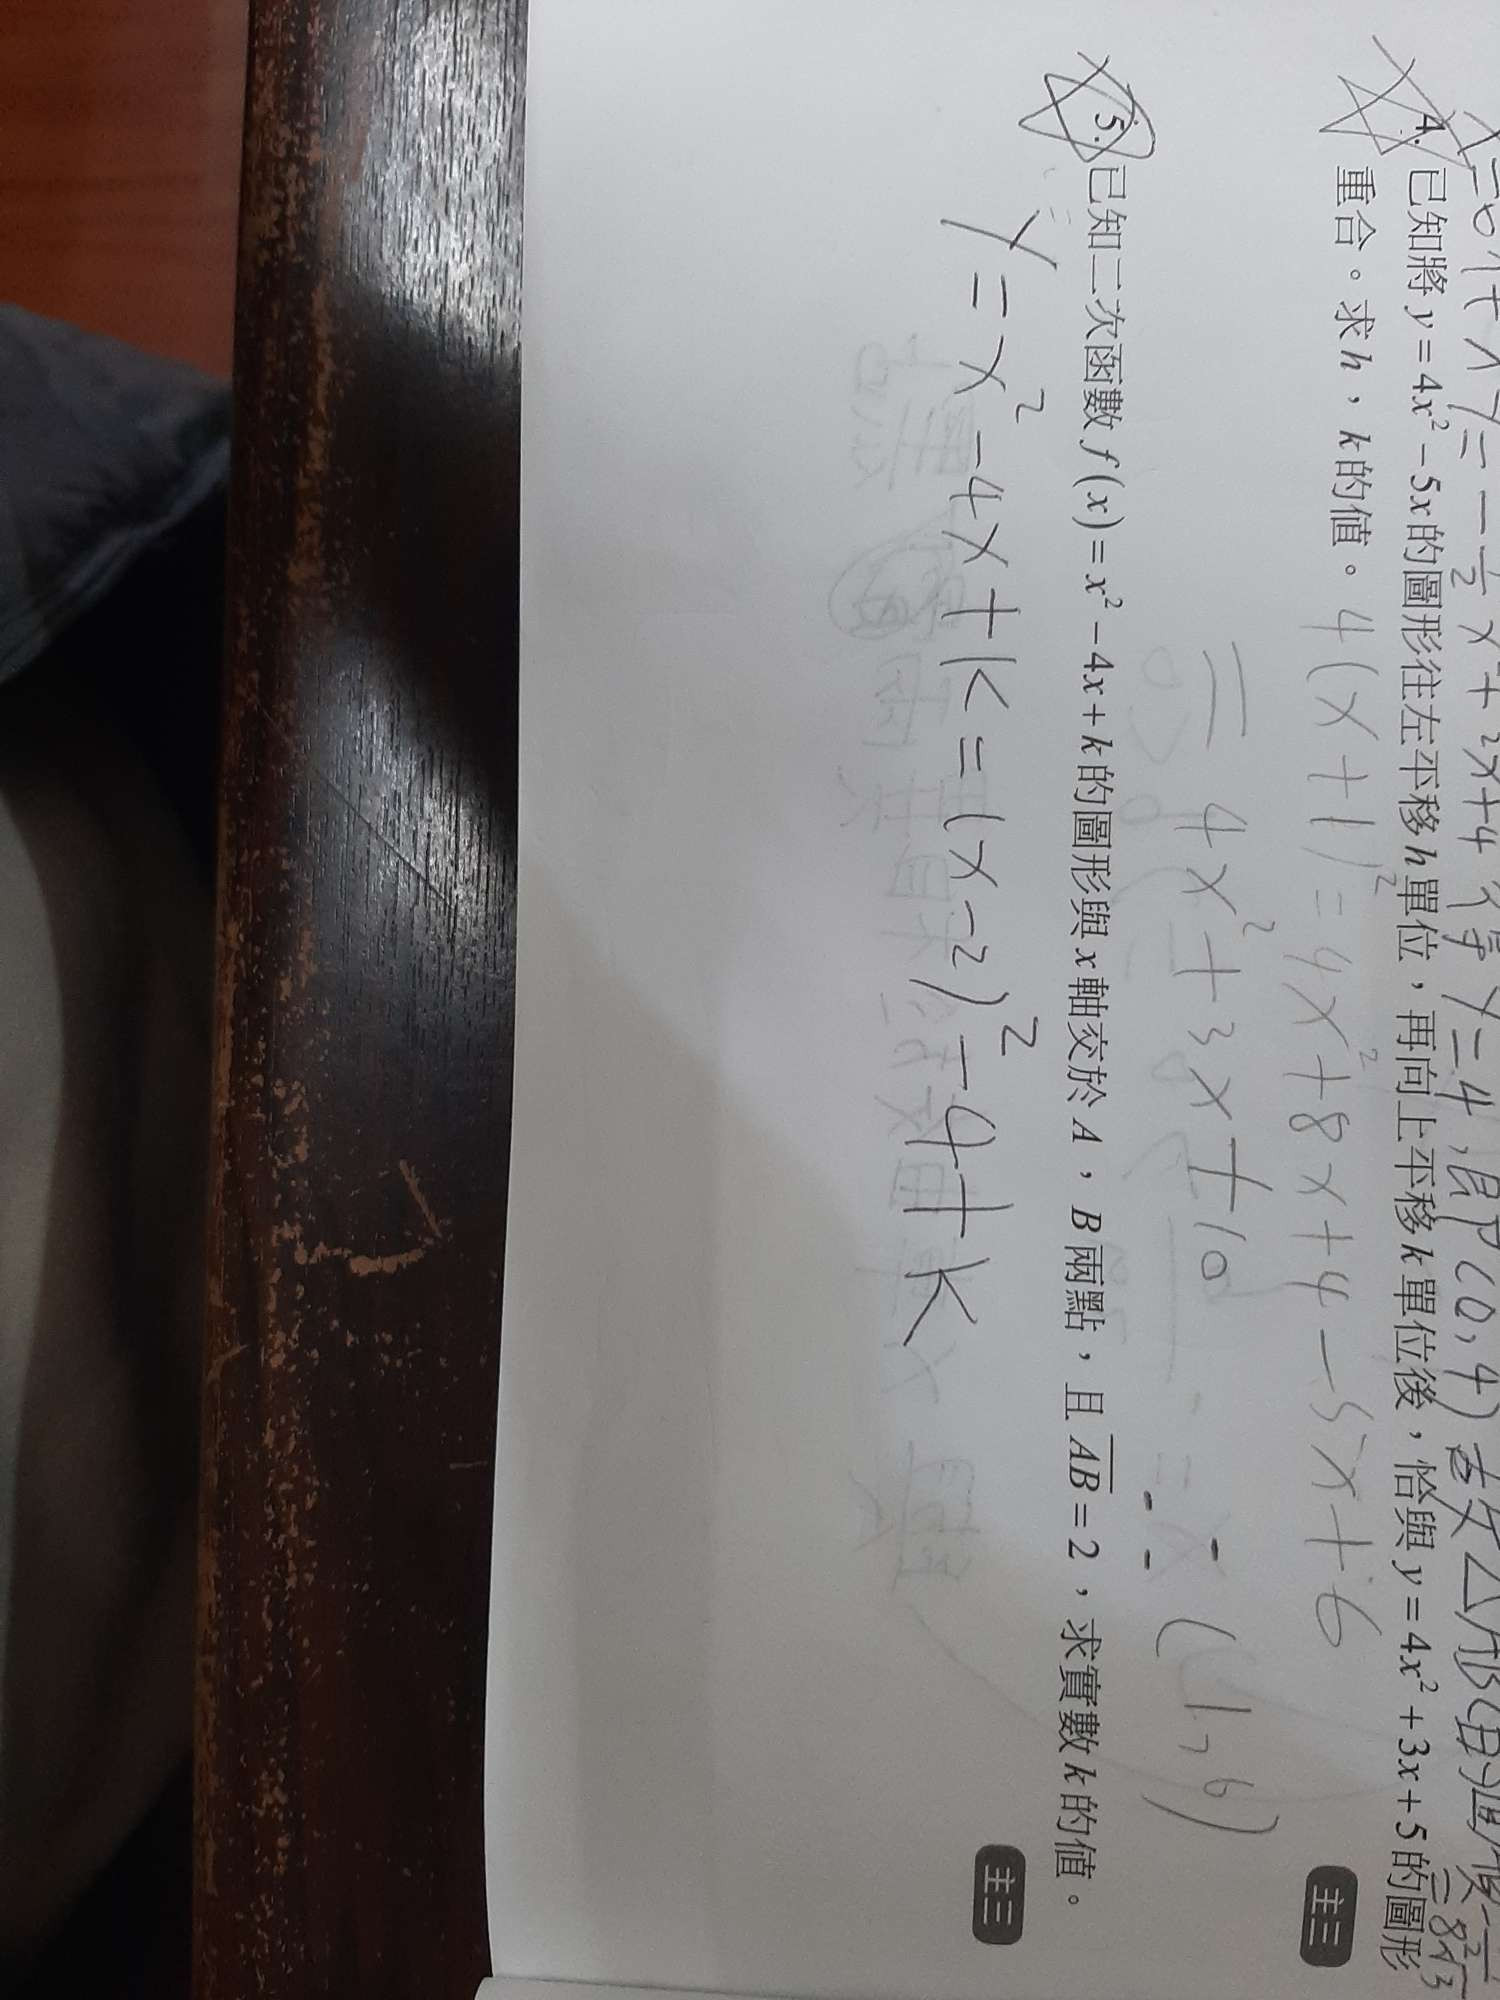 x=0代入 y=-1/2x²+2x+4 得 y=4,即(0,4)
4. 已知將 y = 4x² − 5x 的圖形往左平移 h 單位，再向上平移 k 單位後，恰與 y = 4x² + 3x + 5 的圖形
重合。求 h，k 的值。 4(x+1)² = 4x²+8x+4-5x+6
主三
= 4x²+3x+10
(1,6)
5. 已知二次函數 f(x) = x² − 4x + k 的圖形與 x 軸交於 A，B 兩點，且 AB = 2，求實數 k 的值。
主三
y = x² -4x + k = (x-2)² -4+k